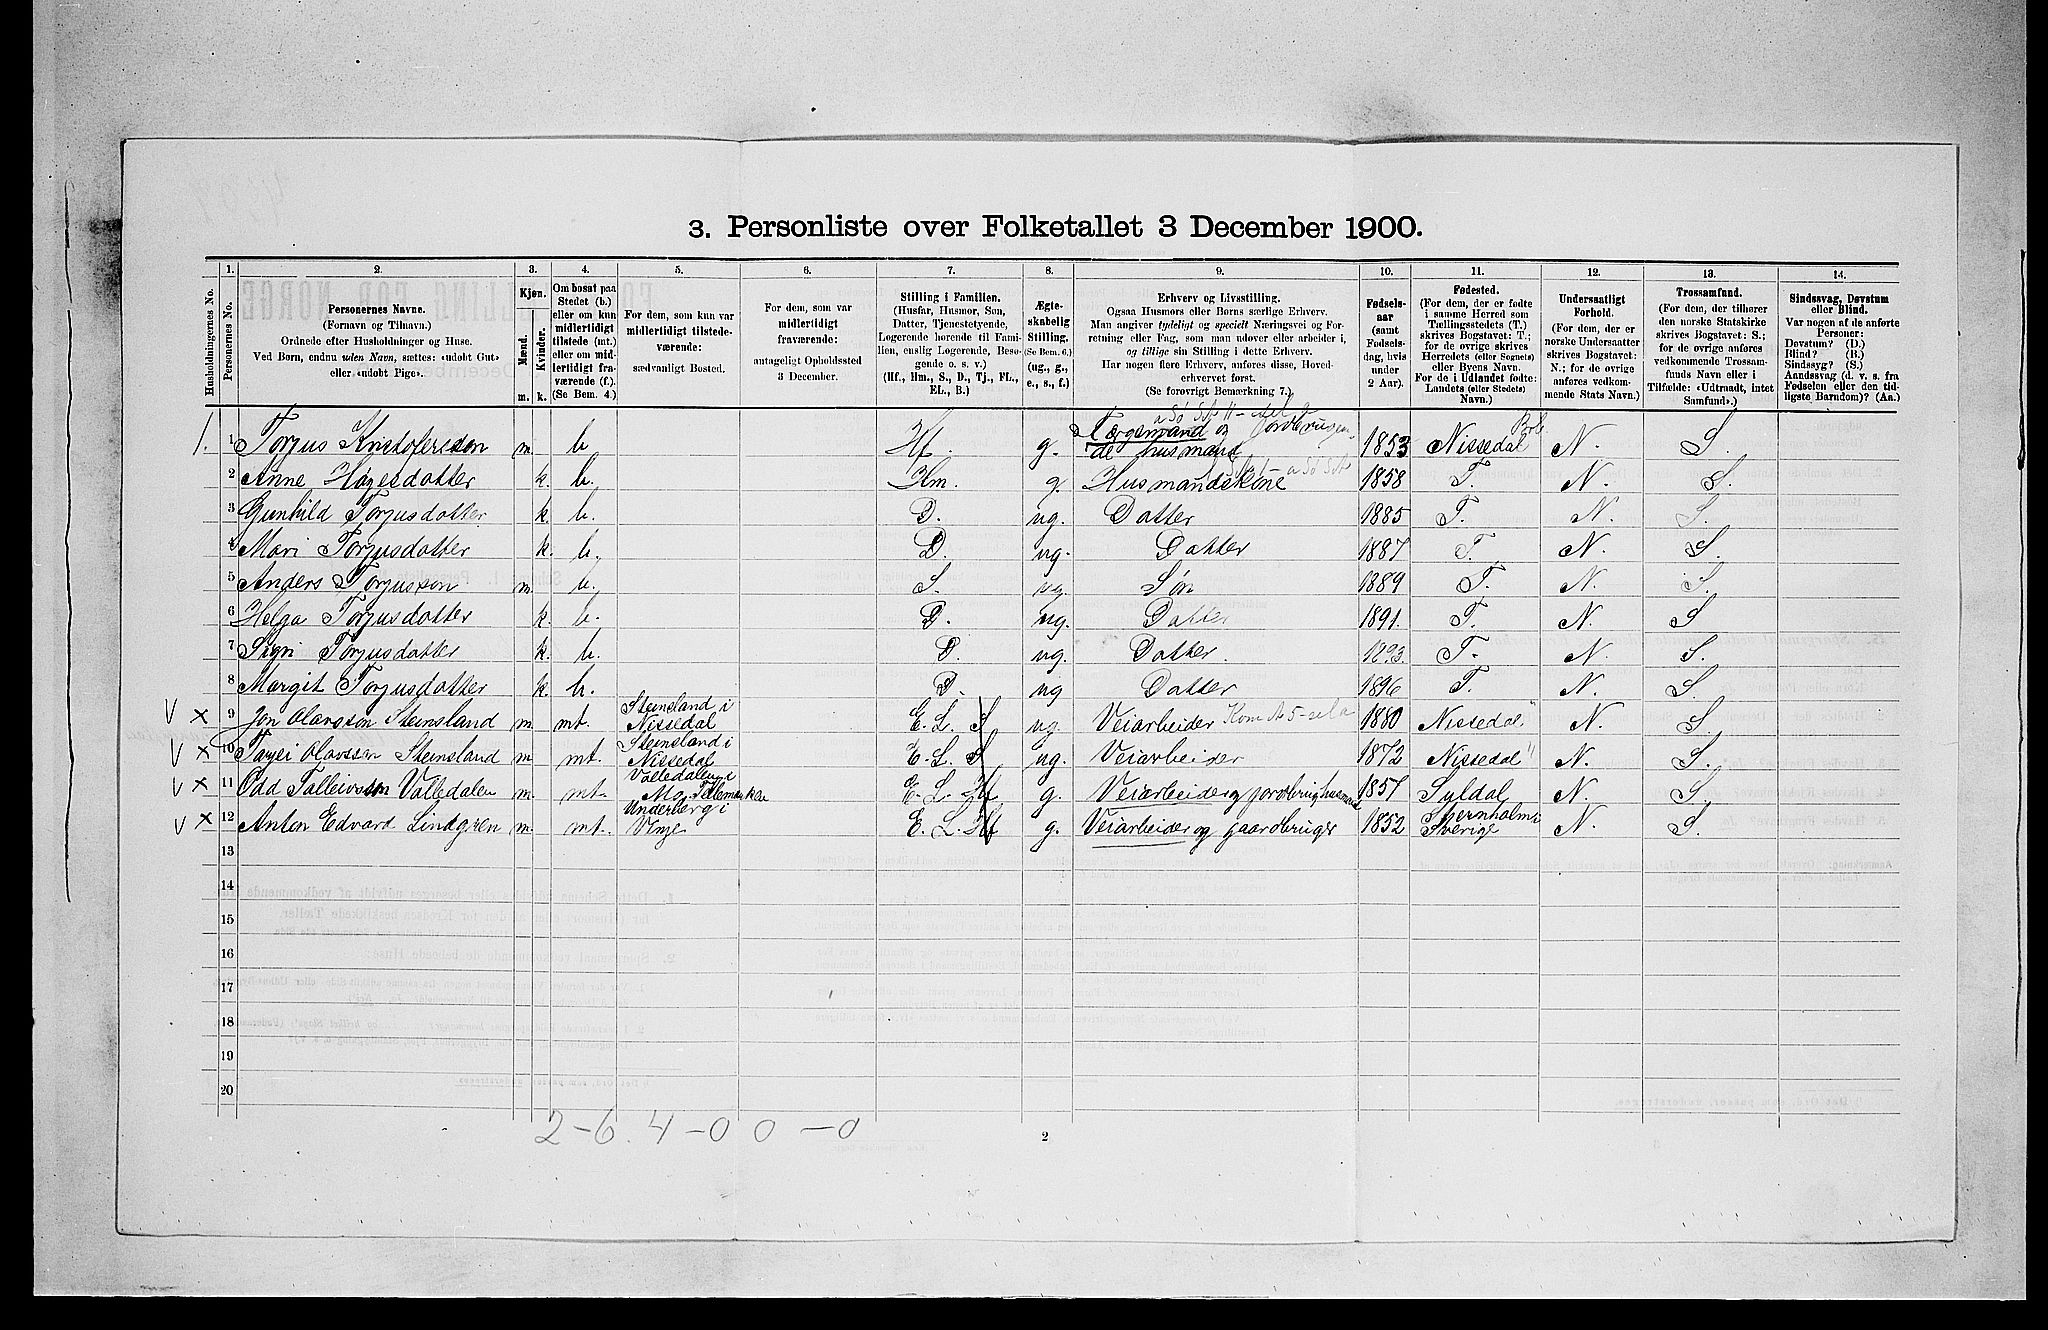 3. Personliste over Folketallet 3 December 1900.
Husholdningernes No.
1. Personernes No.
2. Personernes Navne.
(Fornavn og Tilnavn.)
Ordnede efter Husholdninger og Huse.
Ved Børn, endnu uden Navn, sættes: «udøbt Gut»
eller «udøbt Pige».
3. Kjøn.
Mænd. Kvinder.
m. k.
4. Om bosat paa
Stedet (b.)
eller om kun
midlertidigt
tilstede (mt.)
eller om mid-
lertidigt fra-
værende (f.)
(Se Bem. 4.)
5. For dem, som kun var
midlertidigt tilstede-
værende:
sædvanligt Bosted.
6. For dem, som var
midlertidigt
fraværende:
antageligt Opholdssted
3 December.
7. Stilling i Familien.
(Husfar, Husmor, Søn,
Datter, Tjenestetyende,
Logerende hørende til Fami-
lien, enslig Logerende, Besø-
gende o. s. v.)
(Hf., Hm., S., D., Tj., FL.,
EL., B.)
8. Ægte-
skabelig
Stilling.
(Se Bem. 6.)
(ug., g.,
e., s., f.)
9. Erhverv og Livsstilling.
Ogsaa Husmors eller Børns særlige Erhverv.
Man angiver tydeligt og specielt Næringsvei og For-
retning eller Fag, som man udøver eller arbeider i,
og tillige sin Stilling i dette Erhverv.
Har nogen flere Erhverv, anføres disse, Hoved-
erhvervet først.
(Se forøvrigt Bemærkning 7.)
10. Fødsels-
aar
(samt
Fødsels-
dag, hvis
under
2 Aar).
11. Fødested.
(For dem, der er fødte
i samme Herred som
Tællingsstedets (T.)
skrives Bogstavet: T.;
for de øvrige skrives
Herredets (eller Sognets)
eller Byens Navn.
For de i Udlandet fødte:
Landets (eller Stedets)
Navn.)
12. Undersaatligt
Forhold.
(For dem, der er
norske Undersaatter
skrives Bogstavet:
N.; for de øvrige
anføres vedkom-
mende Stats Navn.)
13. Trossamfund.
(For dem, der tilhører
den norske Statskirke
skrives Bogstavet: S.;
for de øvrige anføres
vedkommende Trossam-
funds Navn eller i
Tilfælde: «Udtraadt, intet
Samfund».)
14. Sindssvag, Døvstum
eller Blind.
Var nogen af de anførte
Personer:
Døvstum? (D.)
Blind? (B.)
Sindssyg? (S.)
Aandssvag (d. v. s. fra
Fødselen eller den tid-
ligste Barndom)? (Aa.)
1. 1 Torjus Kristofersson m. b Hf. g. og Jordbrugen- de husmand 1853 Nissedal N. S.
2 Anne k. b. Hm. g. Husmandskone 1858 T. N. S.
3 Gunhild Torjusdatter k. b. D. ug. Datter 1885 T. N. S.
4 Mari Torjusdatter k. b. D. ug. Datter 1887 T. N. S.
5 Anders Torjusson m. b. S. ug. Søn 1889 T. N. S.
6 Helga Torjusdatter k. b. D. ug. Datter 1891. T. N. S
7 Sigri Torjusdatter k. b. D. ug. Datter. 1893. T. N. S.
8 Margit Torjusdatter k b. D. ug Datter 1896 T. N. S.
V x 9 Jon Olavsson Steinsland m. mt. Steinsland i Nissedal E. L. S ug. Veiarbeider 1880 Nissedal N. S.
V x 10 Tarjei Olavsson Steinsland m. mt. Steinsland i Nissedal E. L. S ug. Veiarbeider 1872 Nissedal N. S.
V x 11 Odd Talleivsson Valledalen m. mt. Valledalen i Mo, Telemarken E. L. Hf g. Veiarbeider og jordbrug husmand 1857 N. S.
V x 12 Anton Edvard Lindgren m. mt. Underberg i Vinje E. L. Hf g. Veiarbeider og gaardbruger 1852 Sverige N. S.
13
14
15
16
17
18
19
20
2-6. 4-0 0-0
2